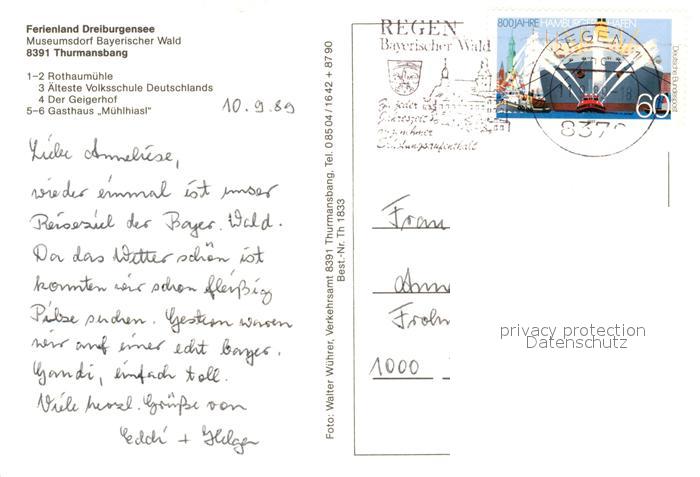 Ferienland Dreiburgensee
Museumsdorf Bayerischer Wald
8391 Thurmansbang
1–2 Rothaumühle
3 Älteste Volksschule Deutschlands
4 Der Geigerhof
5–6 Gasthaus „Mühlhiasl"
10.9.89
Liebe Anneliese,
wieder einmal ist unser
Reiseziel der Bayer. Wald.
Da das Wetter schön ist
konnten wir schon fleißig
Pilze suchen. Gestern waren
wir auf einer echt bayer.
Gaudi, einfach toll.
Viele herzl. Grüße von
Eddi + Helga
Foto: Walter Wührer, Verkehrsamt 8391 Thurmansbang, Tel. 0 85 04 / 16 42 + 87 90
Best.-Nr. Th 1833
REGEN
Bayerischer Wald
Zu jeder
Jahreszeit
angenehmer
Erholungsaufenthalt
800 JAHRE HAMBURGER HAFEN
Deutsche Bundespost
60
REGEN 1
-18
8370
Frau
Ann
Frohn
1000
privacy protection
Datenschutz